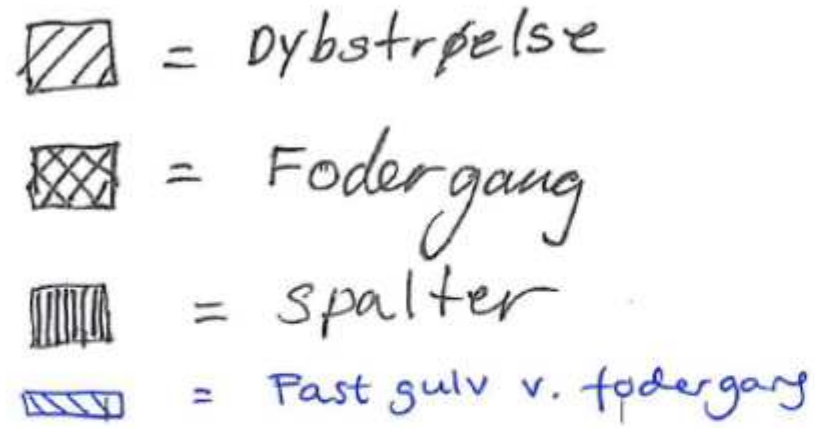 = Dybstrøelse
= Fodergang
= spalter
= Fast gulv v. fodergang